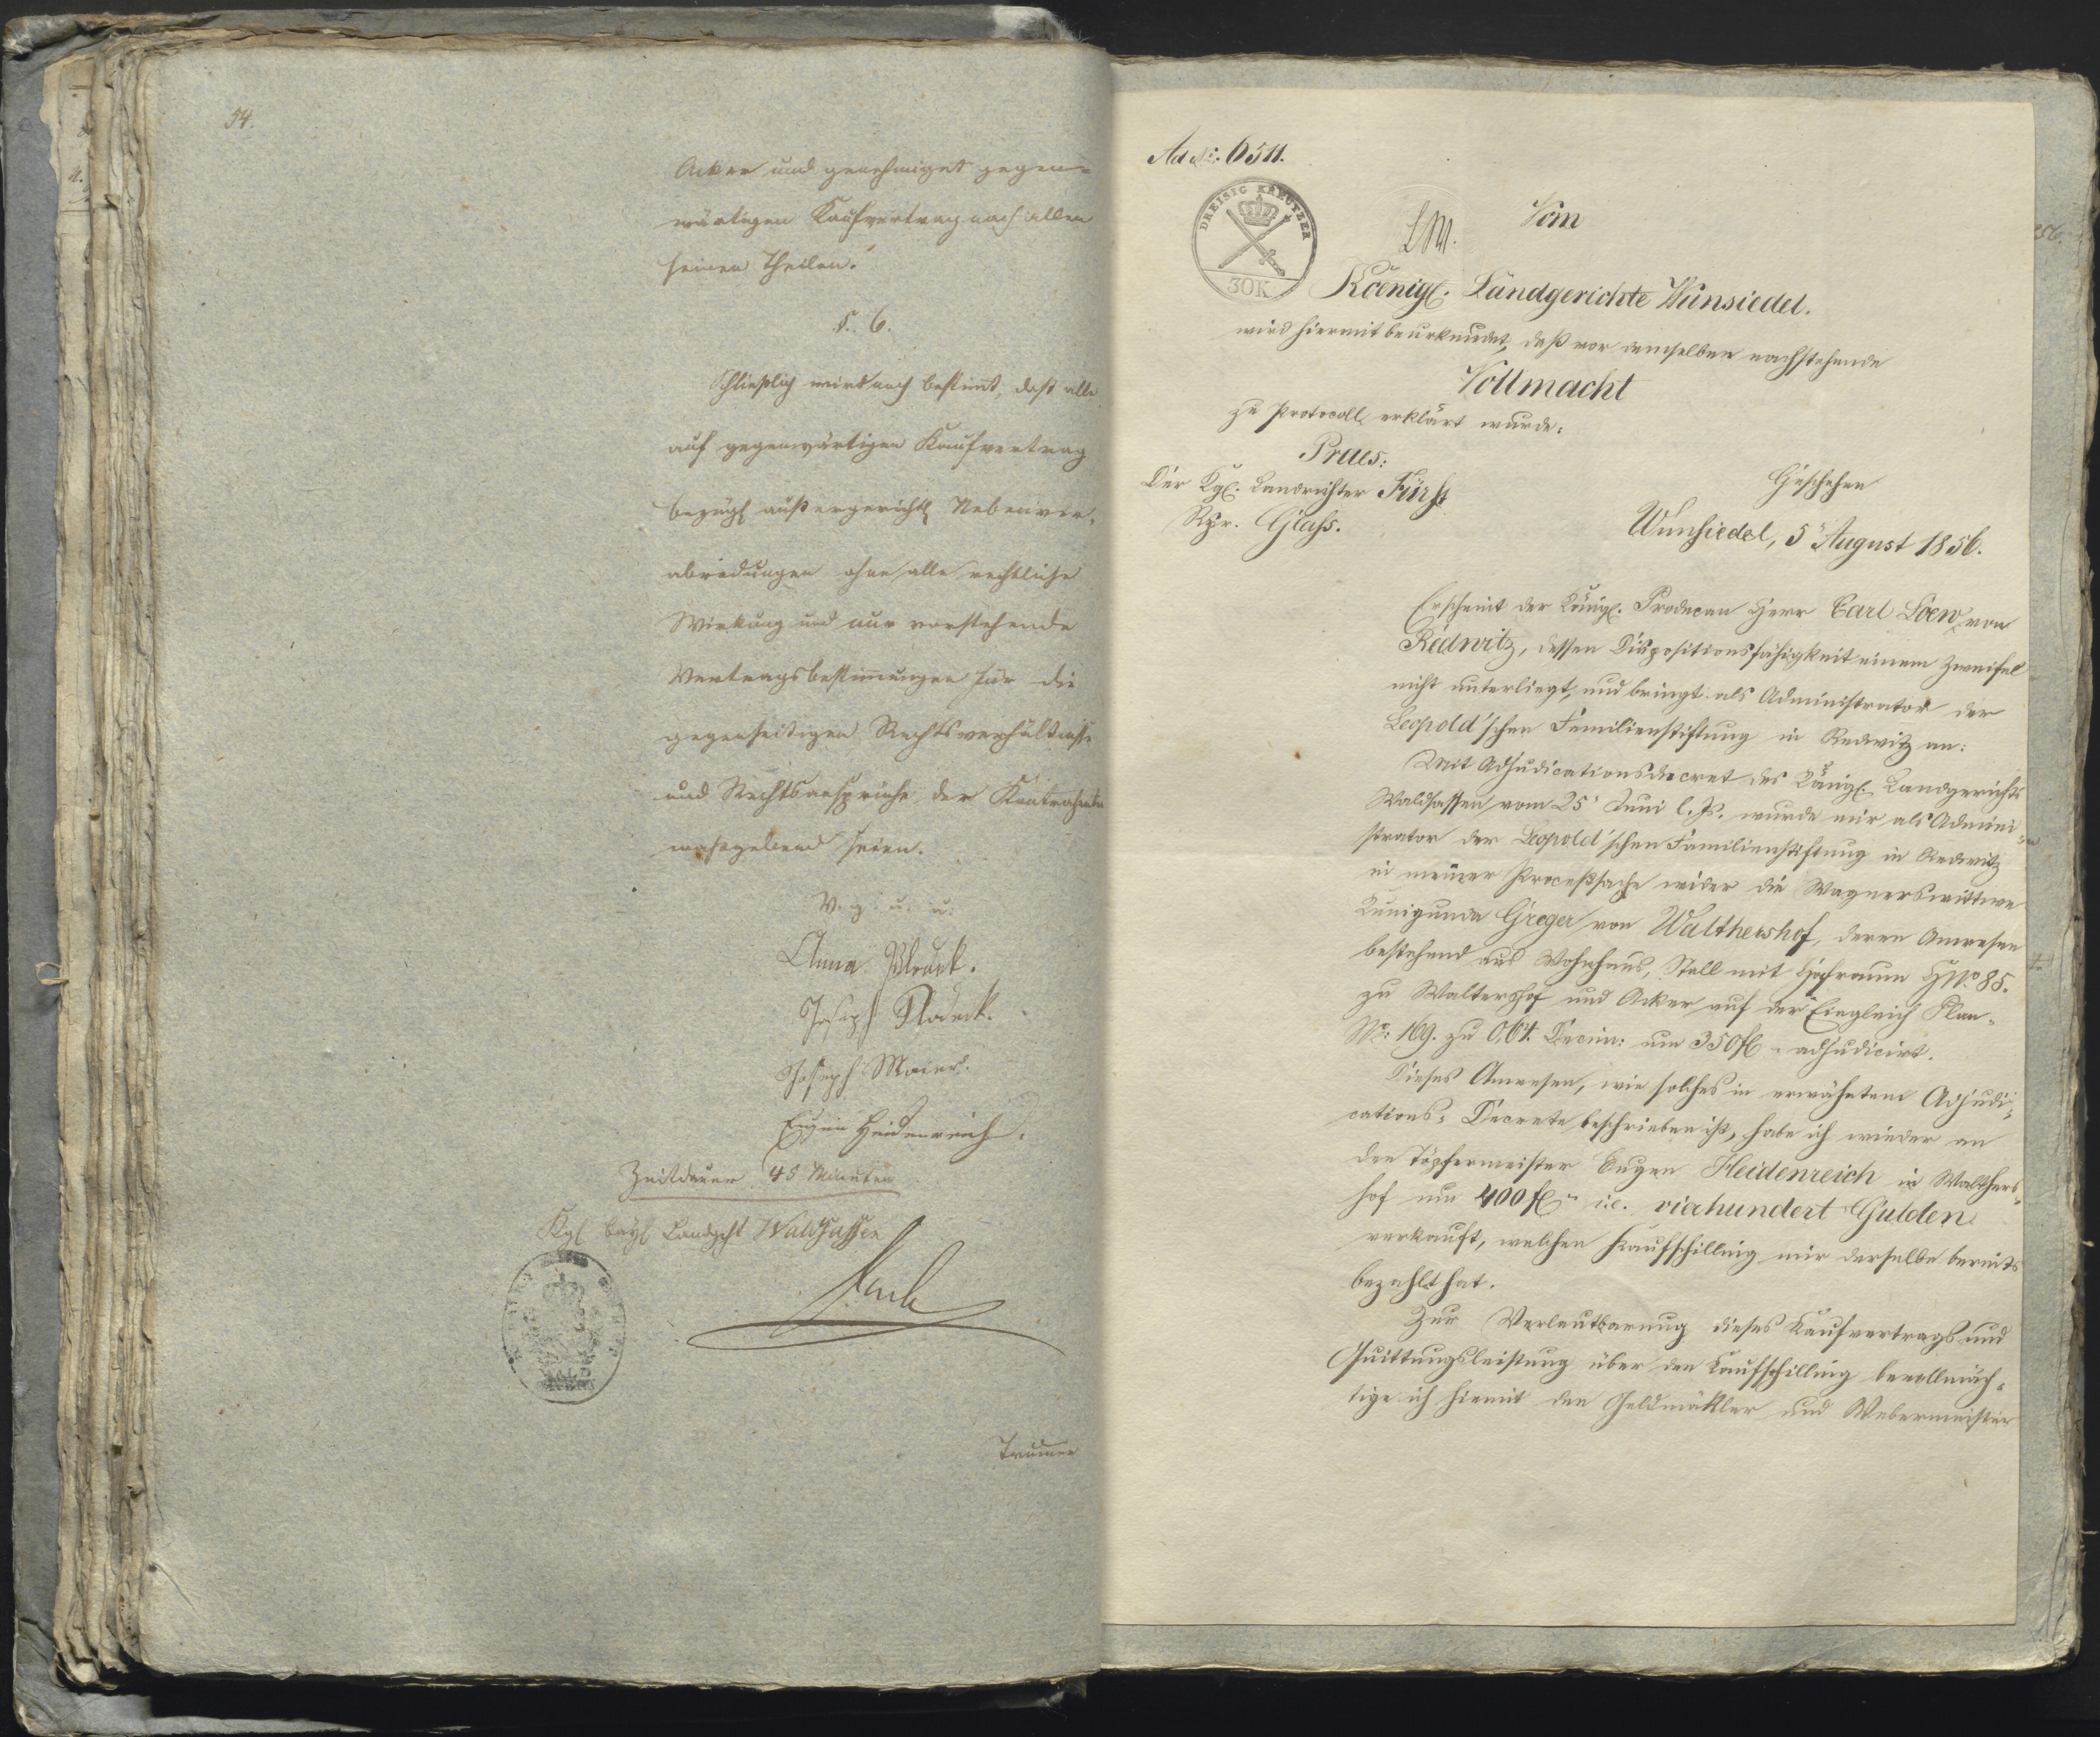 54.
Acker und genehmiget gegen=
wärtigen Kaufvertrag nach allen
seinen Theilen.
§. 6.
Schließlich wird noch bestimt, daß alle
auf gegenwärtigen Kaufvertrag
bezügl außergerichtl Nebenver-
abredungen ohne alle rechtliche
Wirkung und nur vorstehende
Vertragsbestimungen für die
gegenseitigen Rechtsverhältnisse
und Rechtsansprüche der Kontrahenten
maßgebend seien.
V. g. u. u.
Anna
Joseph
Joseph Maier.
Eugen Heidenreich.
Zeitdauer 45 Minuten
Kgl bayl Landgcht Waldsassen
Ad No: 6511.
DREISIG KREUTZER
30K
Vom
Koenigl. Landgerichte Wunsiedel.
wird hiermit beurkundet, daß vor demselben nachstehende
Vollmacht
zu Protocoll erklärt wurde:
Praes:
Der Kgl. Landrichter Fürst
Geschehen
Rgr. Glass.
Wunsiedel, 5 August 1856.
Erscheint der Königl. Prodecan Herr Carl Loew von
Redwitz, dessen Dispositionsfähigkeit einem Zweifel
nicht unterliegt, und bringt als Administrator der
Leopold'schen Familienstiftung in Redwitz an:
Mit Adjudicationsdecret des Königl. Landgerichts
Waldsassen vom 25 Juni l. Js. wurde mir als Admini=
strator der Leopold'schen Familienstiftung in Redwitz
in meiner Proceßsache wider die Wagnerswittwe
Kunigunda Greger von Walthershof, deren Anwesen
bestehend aus Wohnhaus, Stall mit Hofraum HNo. 85.
zu Waltershof und Acker auf der Eingleich Plan-
No: 169. zu 0,64. Decim: um 350 fl - adjudicirt.
Dieses Anwesen, wie solches in erwähntem Adjudi=
cations-Decrete beschrieben ist, habe ich wieder an
den Töpfermeister Eugen Heidenreich in Walthers=
hof um 400 fl - i.e. vierhundert Gulden
verkauft, welchen Kaufschilling mir derselbe bereits
bezahlt hat.
Zur Verlautbarung dieses Kaufvertrags und
Quittungsleistung über den Kaufschilling bevollmäch=
tige ich hiemit den Geldmäkler und Webermeister